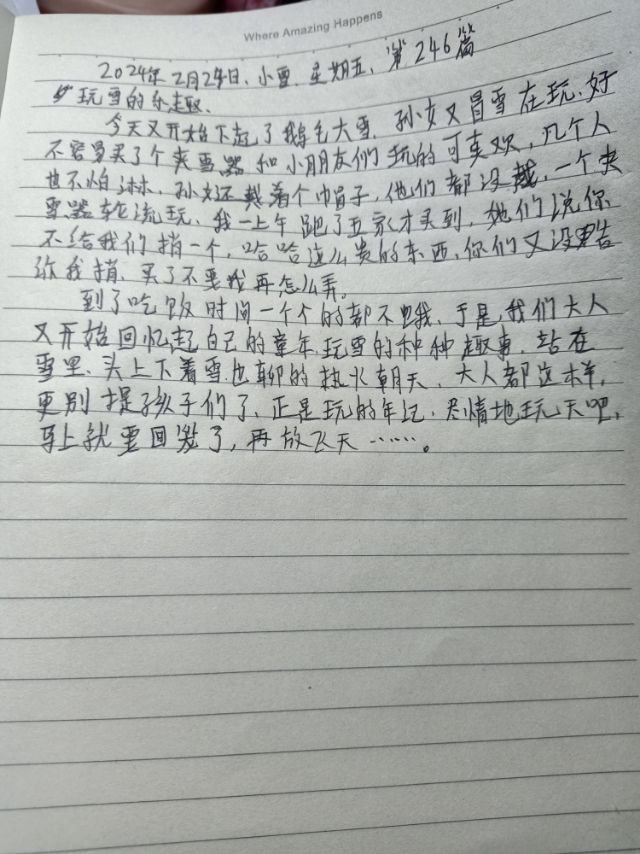 Where Amazing Happens
2024年2月24日、小雪、星期五、第246篇
玩雪的乐趣、
今天又开始下起了鹅毛大雪、孙女又冒雪在玩、好
不容易买了个夹雪器和小朋友们玩的可真欢，几个人
也不怕淋、孙女还戴着个巾冒子，他们都没戴，一个夹
雪器轮流玩、我一上午跑了五家才买到，她们说你
不给我们捎一个，哈哈这么贵的东西，你们又没告
给我捎、买了不要我再怎么弄。
到了吃饭时间一个个的都不饿、于是，我们大人
又开始回忆起自己的童年玩雪的种种趣事、站在
雪里、头上下着雪也聊的热火朝天、大人都这样，
更别提孩子们了、正是玩的年纪、尽情地玩天吧、
马上就要回炉了，再放飞天……。